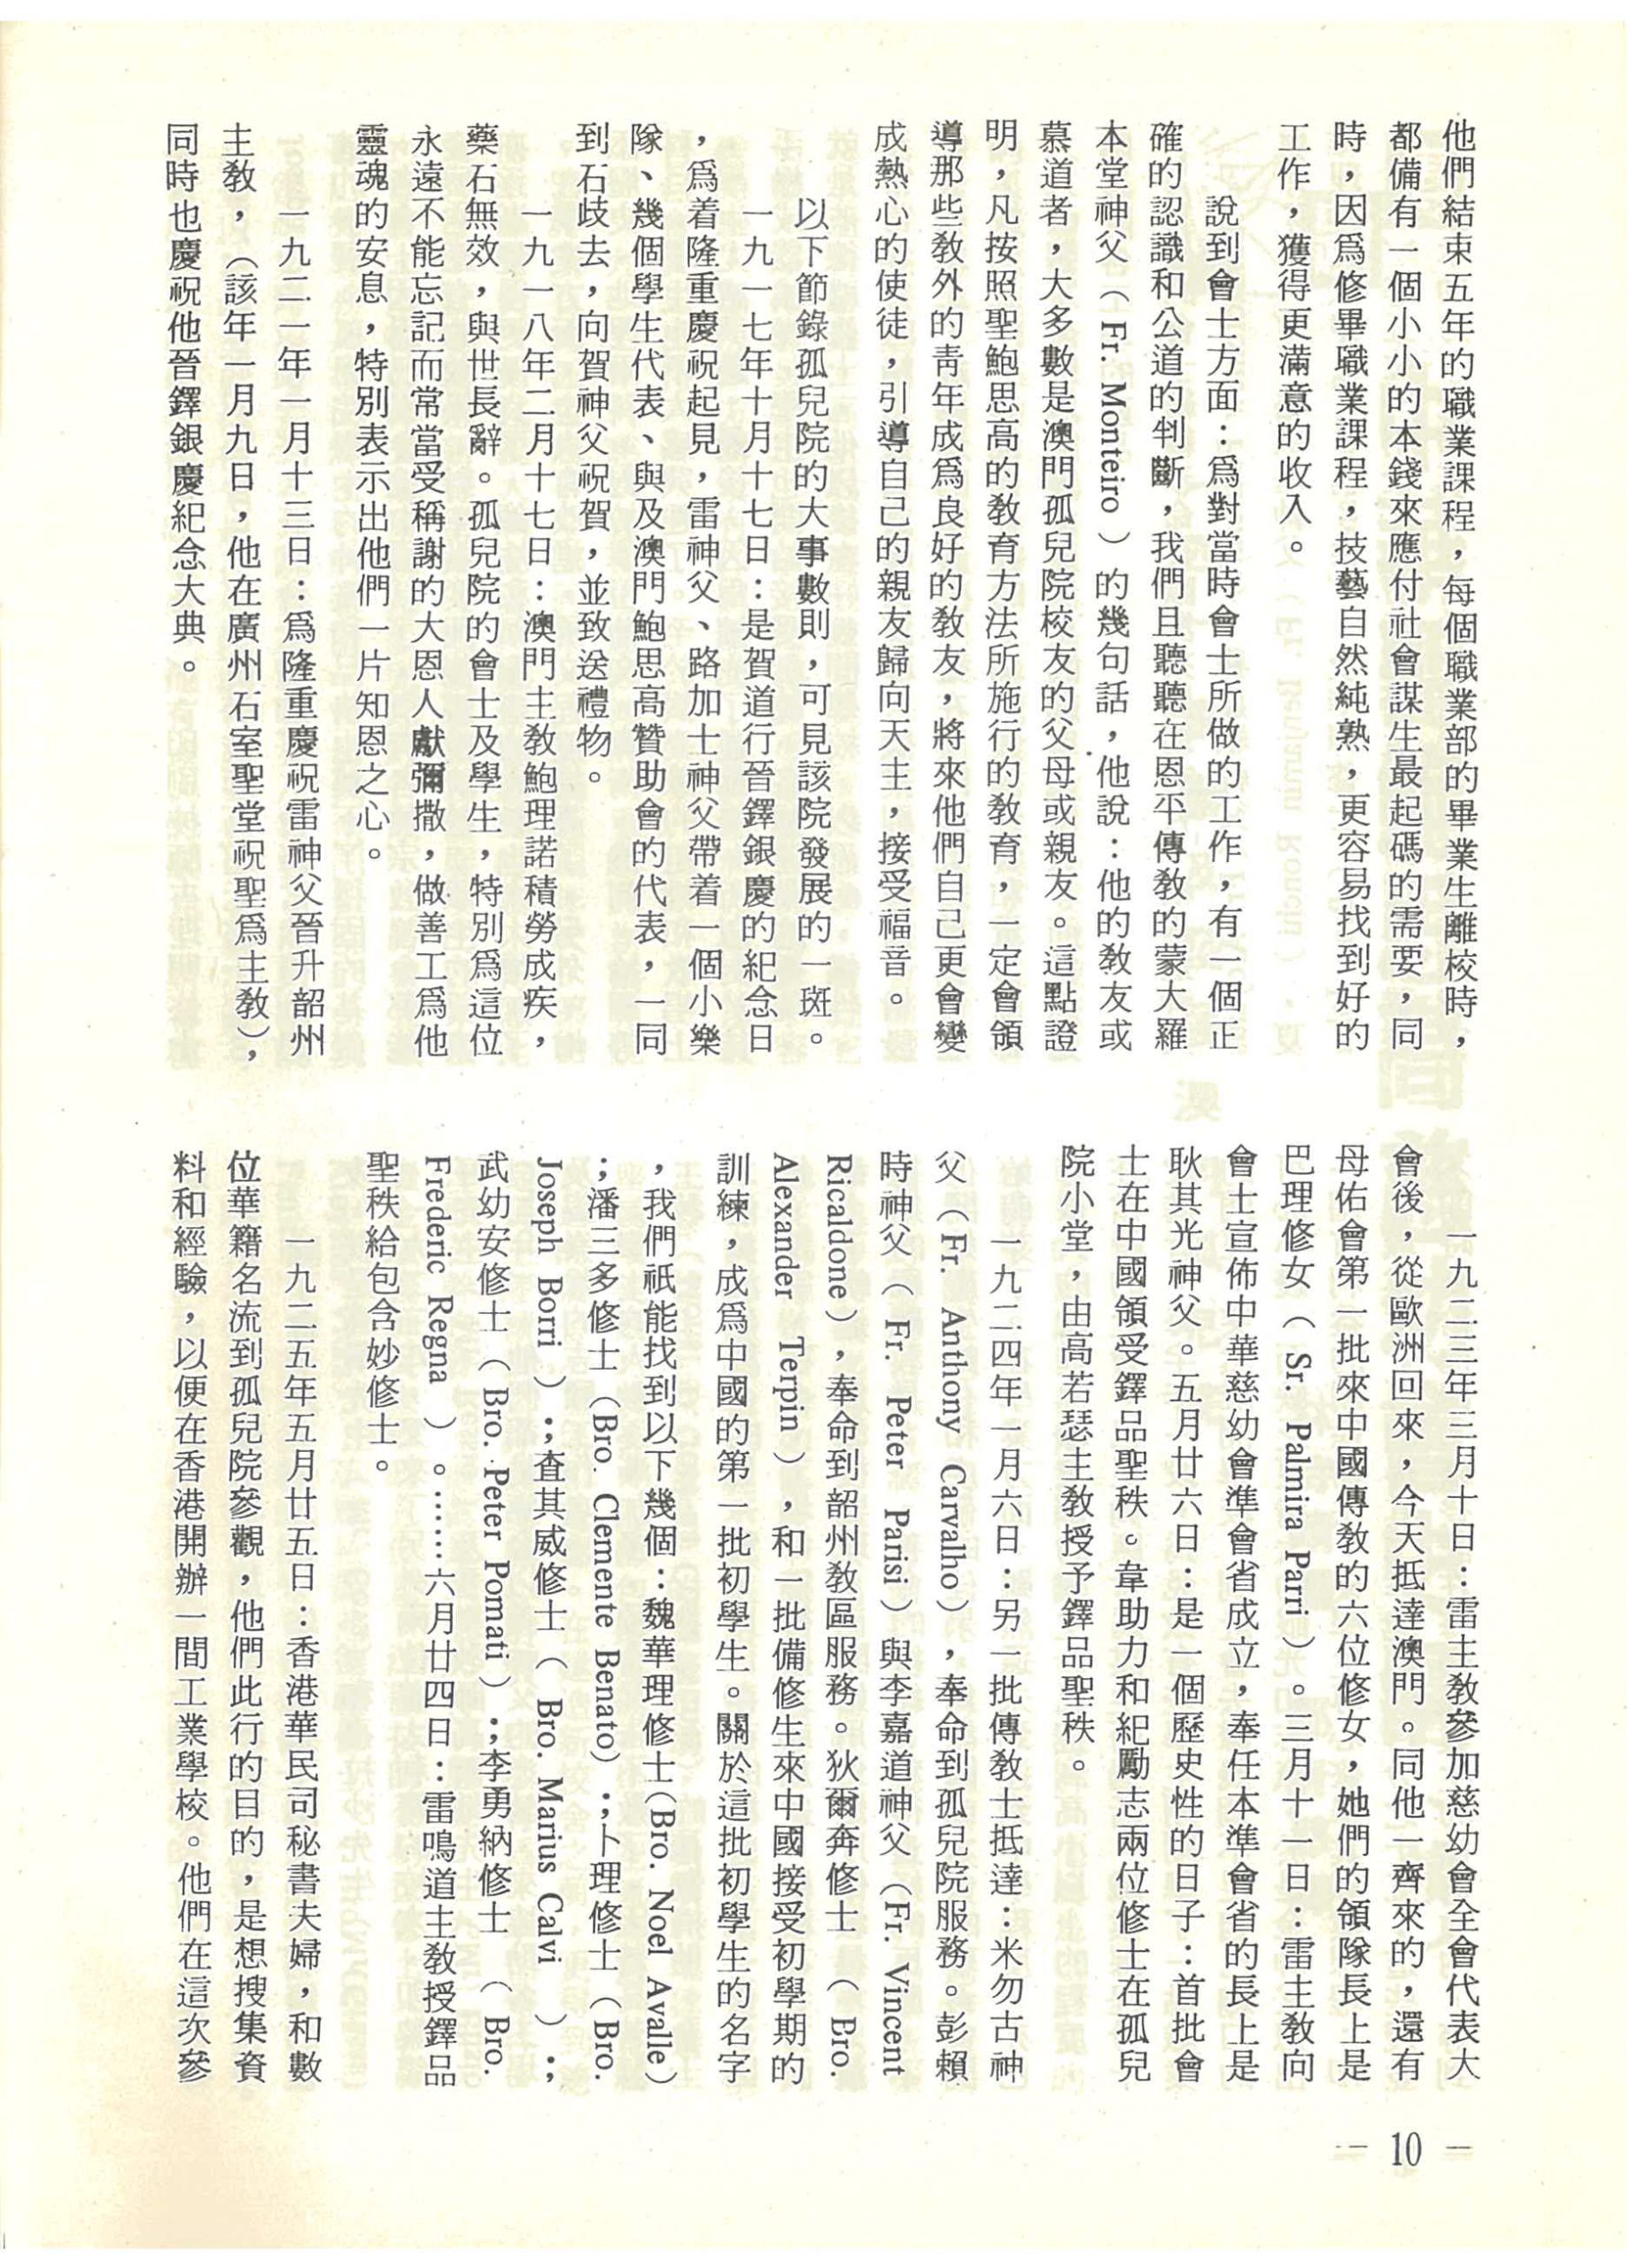 他們結束五年的職業課程，每個職業部的畢業生離校時，
都備有一個小小的本錢來應付社會謀生最起碼的需要，同
時，因爲修畢職業課程，技藝自然純熟，更容易找到好的
工作，獲得更滿意的收入。
說到會士方面：爲對當時會士所做的工作，有一個正
確的認識和公道的判斷，我們且聽聽在恩平傳教的蒙大羅
本堂神父（Fr. Monteiro）的幾句話，他說：他的教友或
慕道者，大多數是澳門孤兒院校友的父母或親友。這點證
明，凡按照聖鮑思高的教育方法所施行的教育，一定會領
導那些教外的靑年成爲良好的教友，將來他們自己更會變
成熱心的使徒，引導自己的親友歸向天主，接受福音。
以下節錄孤兒院的大事數則，可見該院發展的一斑。
一九一七年十月十七日：是賀道行晉鐸銀慶的紀念日
，爲着隆重慶祝起見，雷神父、路加士神父帶着一個小樂
隊、幾個學生代表、與及澳門鮑思高贊助會的代表，一同
到石歧去，向賀神父祝賀，並致送禮物。
一九一八年二月十七日：澳門主教鮑理諾積勞成疾，
藥石無效，與世長辭。孤兒院的會士及學生，特別爲這位
永遠不能忘記而常當受稱謝的大恩人獻彌撒，做善工爲他
靈魂的安息，特別表示出他們一片知恩之心。
一九二一年一月十三日：爲隆重慶祝雷神父晉升韶州
主教，（該年一月九日，他在廣州石室聖堂祝聖爲主教），
同時也慶祝他晉鐸銀慶紀念大典。
一九二三年三月十日：雷主教參加慈幼會全會代表大
會後，從歐洲回來，今天抵達澳門。同他一齊來的，還有
母佑會第一批來中國傳教的六位修女，她們的領隊長上是
巴理修女（Sr. Palmira Parri）。三月十一日：雷主教向
會士宣佈中華慈幼會準會省成立，奉任本準會省的長上是
耿其光神父。五月廿六日：是一個歷史性的日子：首批會
士在中國領受鐸品聖秩。韋助力和紀勵志兩位修士在孤兒
院小堂，由高若瑟主教授予鐸品聖秩。
一九二四年一月六日：另一批傳教士抵達：米勿古神
父（Fr. Anthony Carvalho），奉命到孤兒院服務。彭賴
時神父（Fr. Peter Parisi）與李嘉道神父（Fr. Vincent
Ricaldone），奉命到韶州敎區服務。狄爾奔修士（Bro.
Alexander Terpin），和一批備修生來中國接受初學期的
訓練，成爲中國的第一批初學生。關於這批初學生的名字
，我們祇能找到以下幾個：魏華理修士（Bro. Noel Avalle）
；潘三多修士（Bro. Clemente Benato）；卜理修士（Bro.
Joseph Borri）；査其威修士（Bro. Marius Calvi）；
武幼安修士（Bro. Peter Pomati）；李勇納修士（Bro.
Frederic Regna）。……六月廿四日：雷鳴道主教授鐸品
聖秩給包含妙修士。
一九二五年五月廿五日：香港華民司秘書夫婦，和數
位華籍名流到孤兒院參觀，他們此行的目的，是想搜集資
料和經驗，以便在香港開辦一間工業學校。他們在這次參
— 10 —